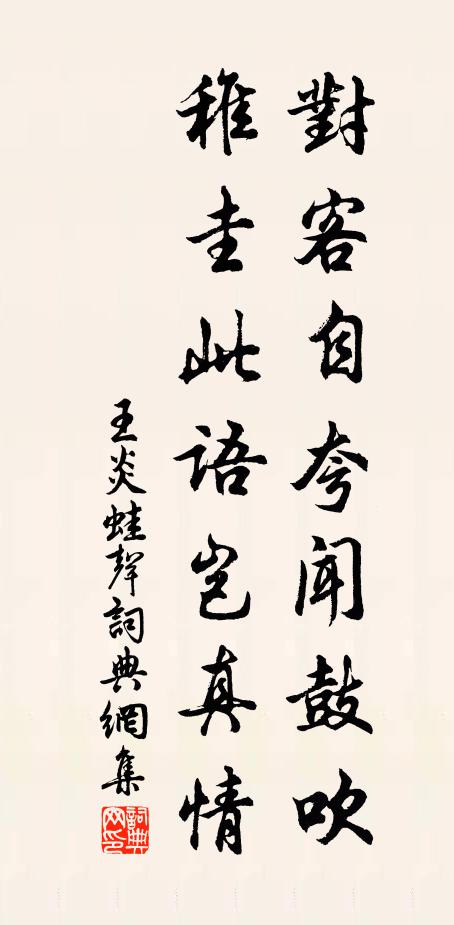 對客自夸聞鼓吹
稚圭此語岂真情
王炎蛙聲詞典網集
詞典网印